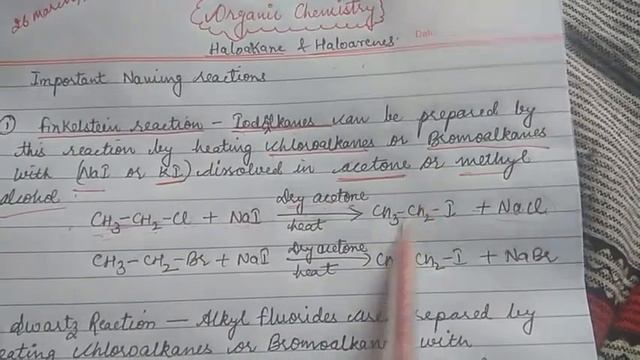 26 March
Organic Chemistry
Date
Haloalkane & Haloarenes.
Important Naming reactions
① finkelstein reaction - Iodoalkanes can be prepared by
this reaction by heating chloroalkanes or Bromoalkanes
with (NaI or KI) dissolved in acetone or methyl
alcohol.
CH3-CH2-Cl + NaI dry acetone heat → CH3-CH2-I + NaCl
CH3-CH2-Br + NaI dry acetone heat → CH2-I + NaBr
Reaction - Alkyl fluorides are prepared by
heating chloroalkanes or Bromoalkanes with